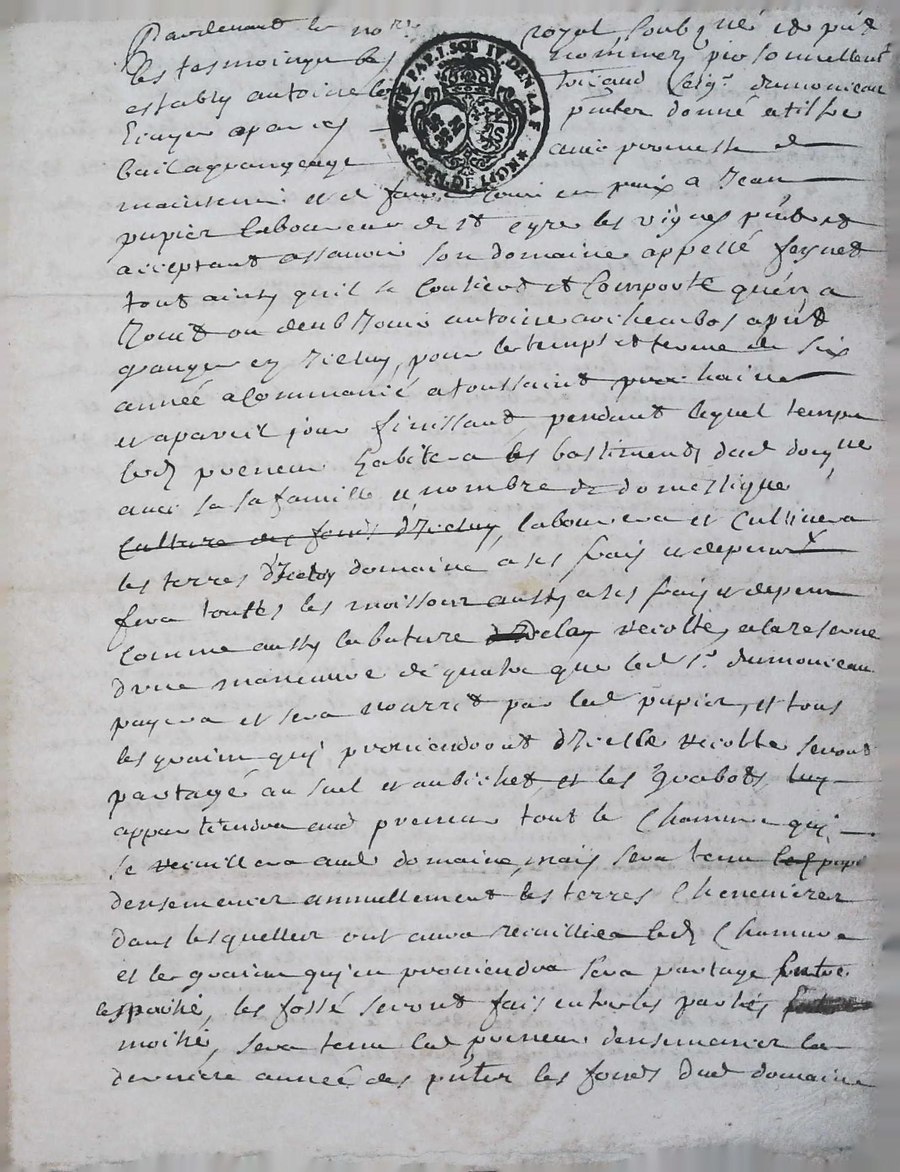 Pardevant le no.re royal soubsigné et pñt
les tesmoings bas nommez personnellemt
estably antoine Seigr dumonceau
Ecuyer a par ces pñtes donné a tiltre
bail a grangeage avec promesse de
maintenir et de faire jouir en paix a Jean
pupier laboureur de st Cyre les vignes pñt et
acceptant assavoir son domaine appellé feynet
tout ainsy quil se Contient et Comporte quen a
Jouit ou deub Jouir antoine a pñt
granger en Iceluy, pour le temps et terme de six
année a Commancé a toussaint prochaine
et a pareil jour finissant, pendant lequel temps
led preneur habitera les bastiments dud domaine
avec sa sa famille et nombre de domestique
Culture des fonds d'Iceluy, labourera et Cultivera
les terres d'Iceluy domaine a ses frais et depens
fera touttes les moissons aussy a ses frais et depens
Comme aussy la bature récolte, a la reserve
dune maneuvre de quatre que led sr. dumonceau
payera et sera nourrit par led pupier, et tous
les grains quy proviendront d'Icelle récolte seront
partagé au suel et au bichet, et les grabots
appartiendra aud preneur tout le Chamvre quy
se recuillera aud domaine, mais sera tenu
densemencer annuellement les terres Chenevieres
dans lesquelles ont aura recuillie led Chamvre
et le grain qu'en proviendra sera partage entre
les partie, les fossé seront fais entre les parties
moitié, sera tenu led preneur densemancer la
derniere année des pñtes les fonds dud domaine
ET PAP. I. SOL IV. DEN. LA F
GEN. DE LION